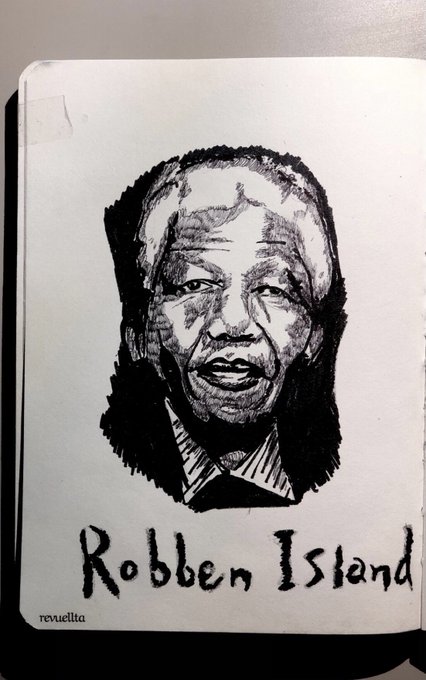 Robben Island
revuellta